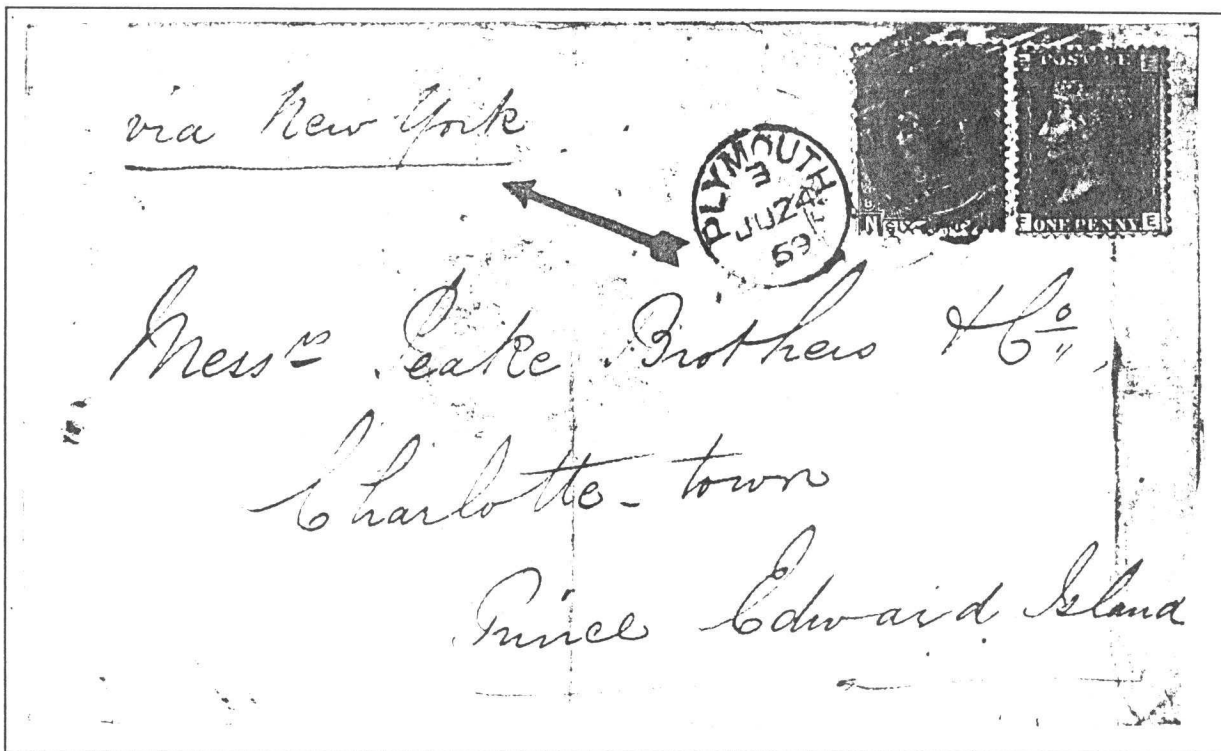 via New York
PLYMOUTH
3
JU 24
69
POSTAGE
F E
ONE PENNY
Mess.rs Peake Brothers & Co.,
Charlotte-town
Prince Edward Island